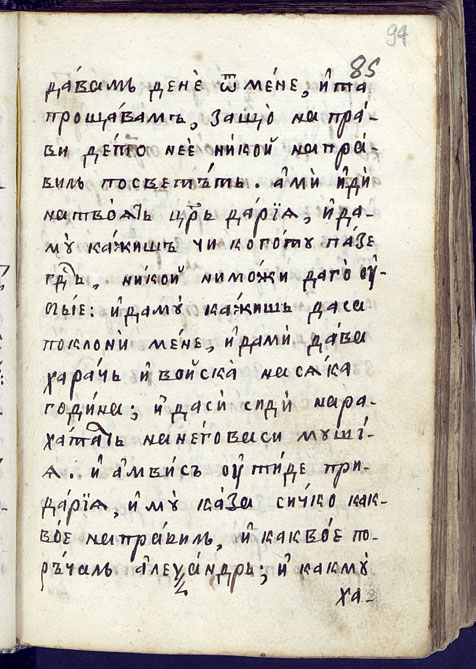 94
85
да́вамъ денѐ ѿ мéне, и҆ та
проща́вамъ, защо̀ напра́-
ви дéто неѐ ни́кой напра́-
виль посветъ́ть. а҆мѝ и҆дѝ
натвоѧтъ цр҃ь да́рїѧ, и҆ да-
мꙋ̀ ка́жишъ чи кого́тꙋ па́зе
гдⷭ҇ь, ни́кой нимо́жи даго̀ ᲂу҆-
бы́е: и҆ дамꙋ̀ ка́жишь даса
поклонѝ мéне, и҆ дамѝ да́ва
хара́чь и҆ войска̀ насѧ́ка
годи́на; и҆ дасѝ сидѝ нара-
ха́тлъ нанéговаси мꙋшї́-
ѧ. и҆ а҆мви́съ ᲂу҆ти́де при-
да́рїѧ, и҆ мꙋ̀ ка́за си́чко как-
во́е напра́виль, и҆ какво́е по-
рѫ́чаль а҆леѯа́ндръ; и҆ какмꙋ̀
ха-